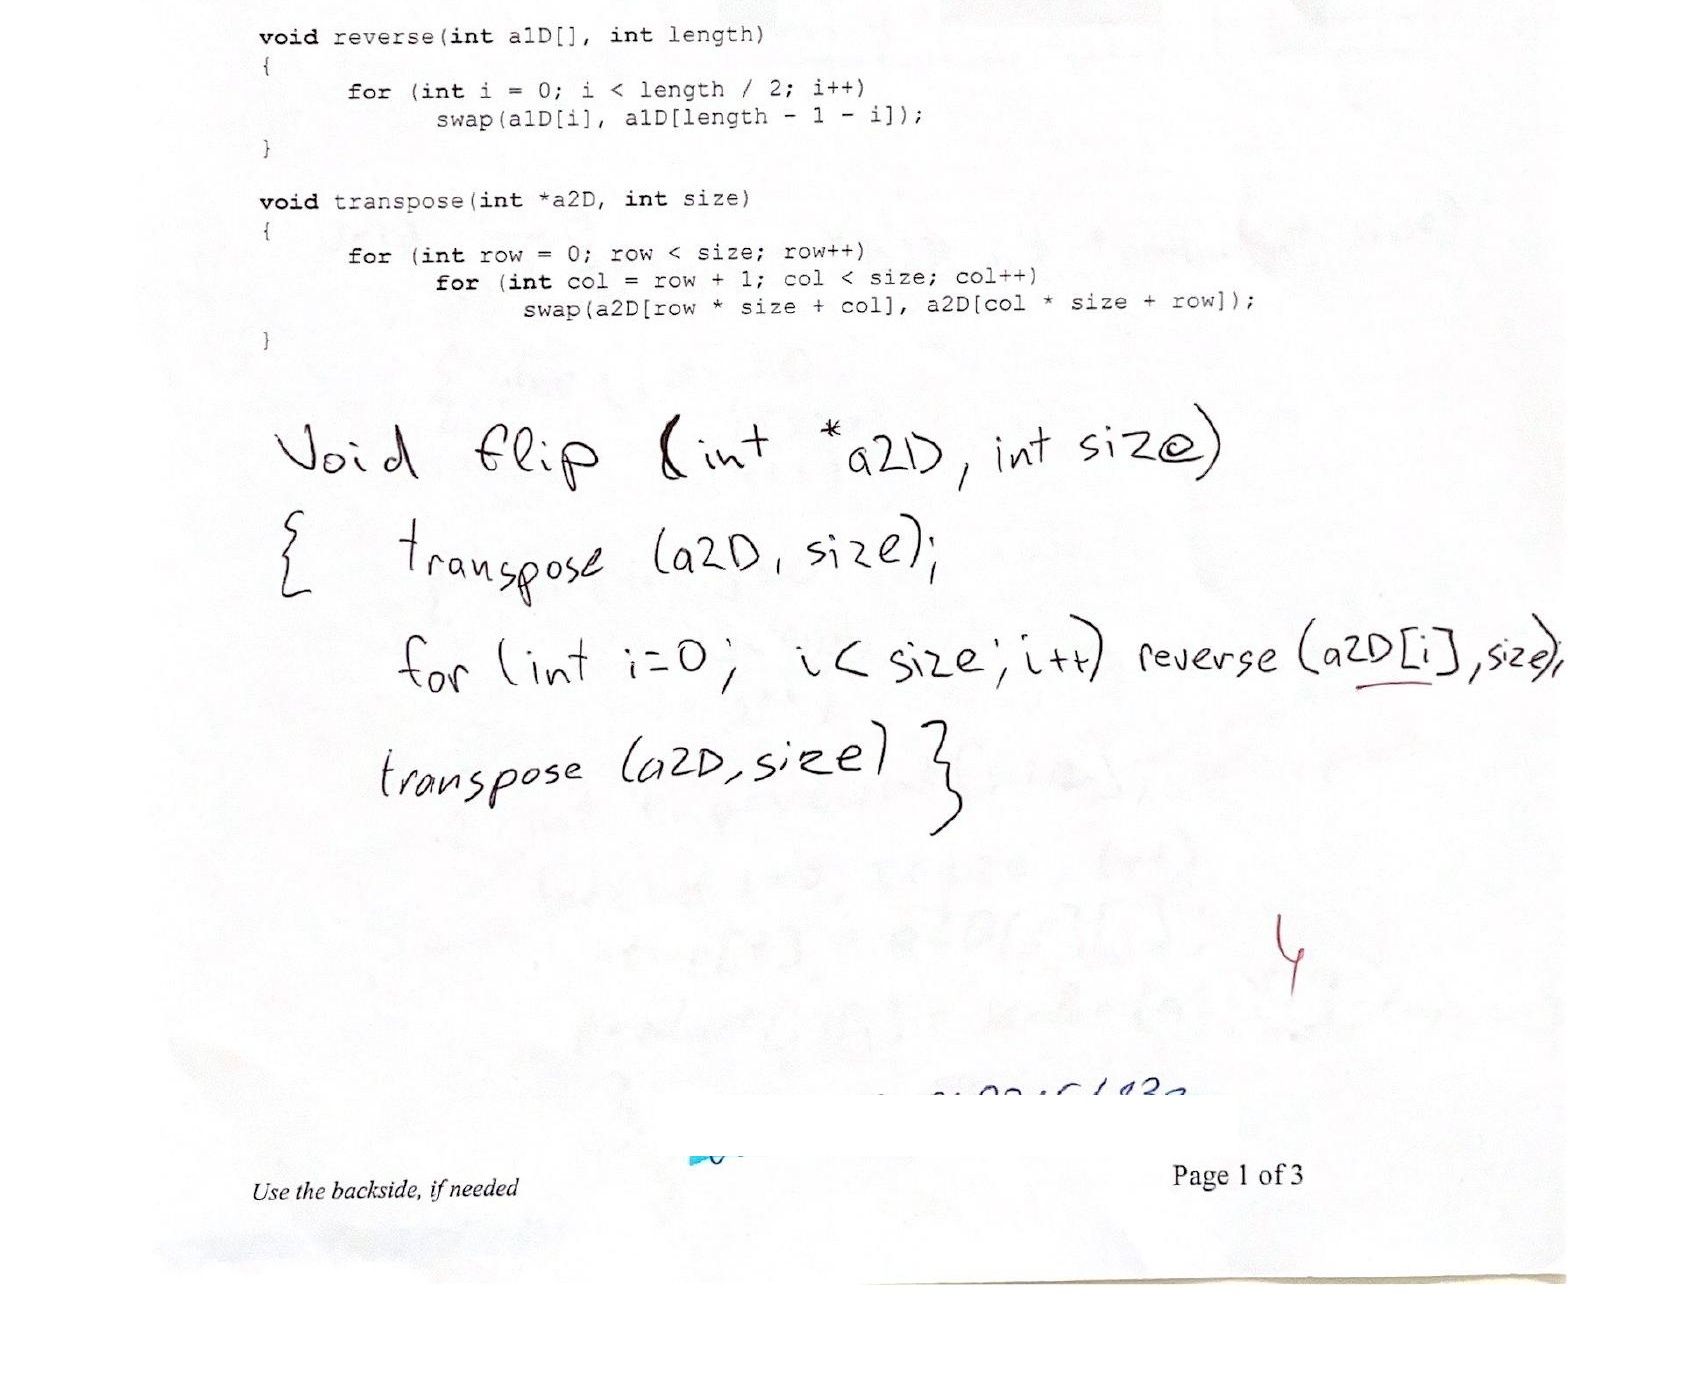 void reverse(int a1D[], int length)
{
for (int i = 0; i < length / 2; i++)
swap(a1D[i], a1D[length - 1 - i]);
}
void transpose(int *a2D, int size)
{
for (int row = 0; row < size; row++)
for (int col = row + 1; col < size; col++)
swap(a2D[row * size + col], a2D[col * size + row]);
}
Void flip (int *a2D, int size)
{ transpose (a2D, size);
for (int i=0; i< size; i++) reverse (a2D[i], size);
transpose (a2D, size) }
4
Use the backside, if needed
Page 1 of 3